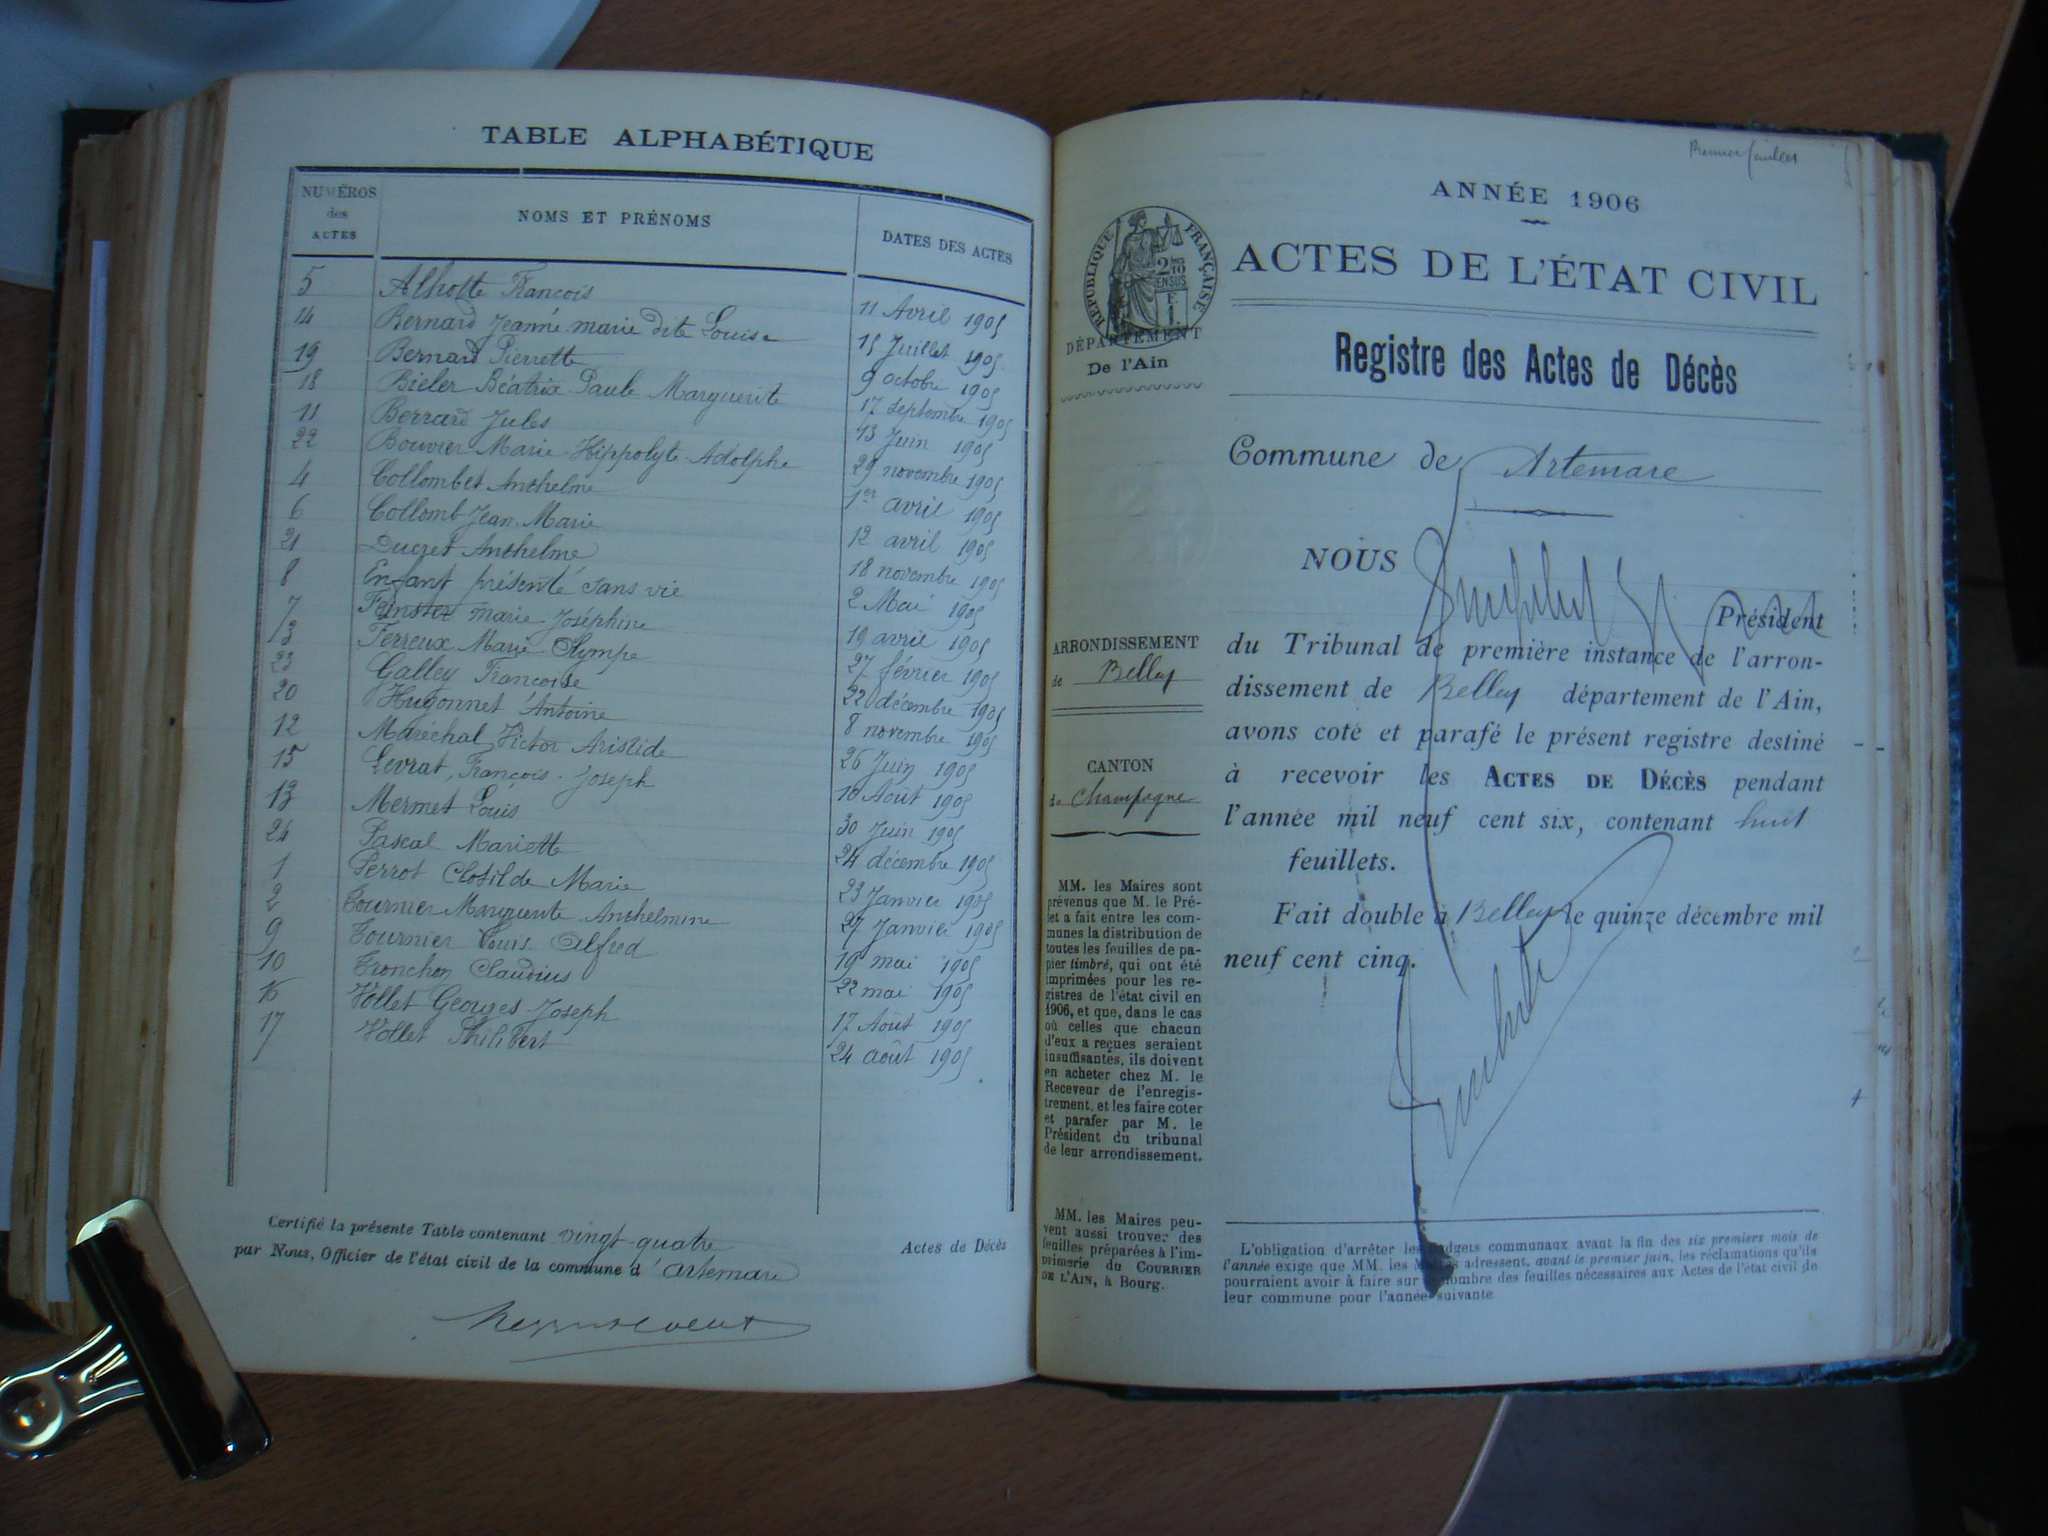 TABLE ALPHABÉTIQUE
NUMÉROS des ACTES
NOMS ET PRÉNOMS
DATES DES ACTES
5 Alhoste François 11 Avril 1905
14 Bernard Jeanne marie dite Louise 15 Juillet 1905
19 Bernard Pierrette 9 octobre 1905
18 Bieler Béatrix Paule Marguerite 17 septembre 1905
11 Berrard Jules 13 Juin 1905
22 Bouvier Marie Hippolyte Adolphe 29 novembre 1905
4 Collombet Anthelme 1er avril 1905
6 Collomb Jean Marie 12 avril 1905
21 Ducret Anthelme 18 novembre 1905
8 Enfant présenté sans vie 2 Mai 1905
7 marie Joséphine 19 avril 1905
3 Ferreux Marie Olympe 27 février 1905
23 Galley Françoise 22 décembre 1905
20 Hugonnet Antoine 8 novembre 1905
12 Maréchal Victor Aristide 26 Juin 1905
15 Levrat François Joseph 10 Août 1905
13 Mermet Louis 30 Juin 1905
24 Pascal Mariette 24 décembre 1905
1 Perrot Clotilde Marie 23 Janvier 1905
2 Tournier Marguerite Anthelmine 27 Janvier 1905
9 Tournier Louis Alfred 19 mai 1905
10 Tronchon Claudius 22 mai 1905
16 Vollet Georges Joseph 17 Août 1905
17 Vollet Philibert 24 août 1905
Certifié la présente Table contenant vingt quatre Actes de Décès
par Nous, Officier de l'état civil de la commune d'artemare
Premier feuillet
ANNÉE 1906
ACTES DE L'ÉTAT CIVIL
RÉPUBLIQUE FRANÇAISE
2 10 EN SUS
F. 1.
DÉPARTEMENT
De l'Ain
Registre des Actes de Décès
Commune de Artemare
NOUS
Président
du Tribunal de première instance de l'arron-
dissement de Belley département de l'Ain,
avons coté et parafé le présent registre destiné
à recevoir les ACTES DE DÉCÈS pendant
l'année mil neuf cent six, contenant huit
feuillets.
Fait double à Belley le quinze décembre mil
neuf cent cinq.
ARRONDISSEMENT
de Belley
CANTON
de Champagne
MM. les Maires sont
prévenus que M. le Pré-
fet a fait entre les com-
munes la distribution de
toutes les feuilles de pa-
pier timbré, qui ont été
imprimées pour les re-
gistres de l'état civil en
1906, et que, dans le cas
où celles que chacun
d'eux a reçues seraient
insuffisantes, ils doivent
en acheter chez M. le
Receveur de l'enregis-
trement, et les faire coter
et parafer par M. le
Président du tribunal
de leur arrondissement.
MM. les Maires peu-
vent aussi trouver des
feuilles préparées à l'im-
primerie du COURRIER
DE L'AIN, à Bourg.
L'obligation d'arrêter les budgets communaux avant la fin des six premiers mois de
l'année exige que MM. les Maires adressent, avant le premier juin, les réclamations qu'ils
pourraient avoir à faire sur le nombre des feuilles nécessaires aux Actes de l'état civil de
leur commune pour l'année suivante